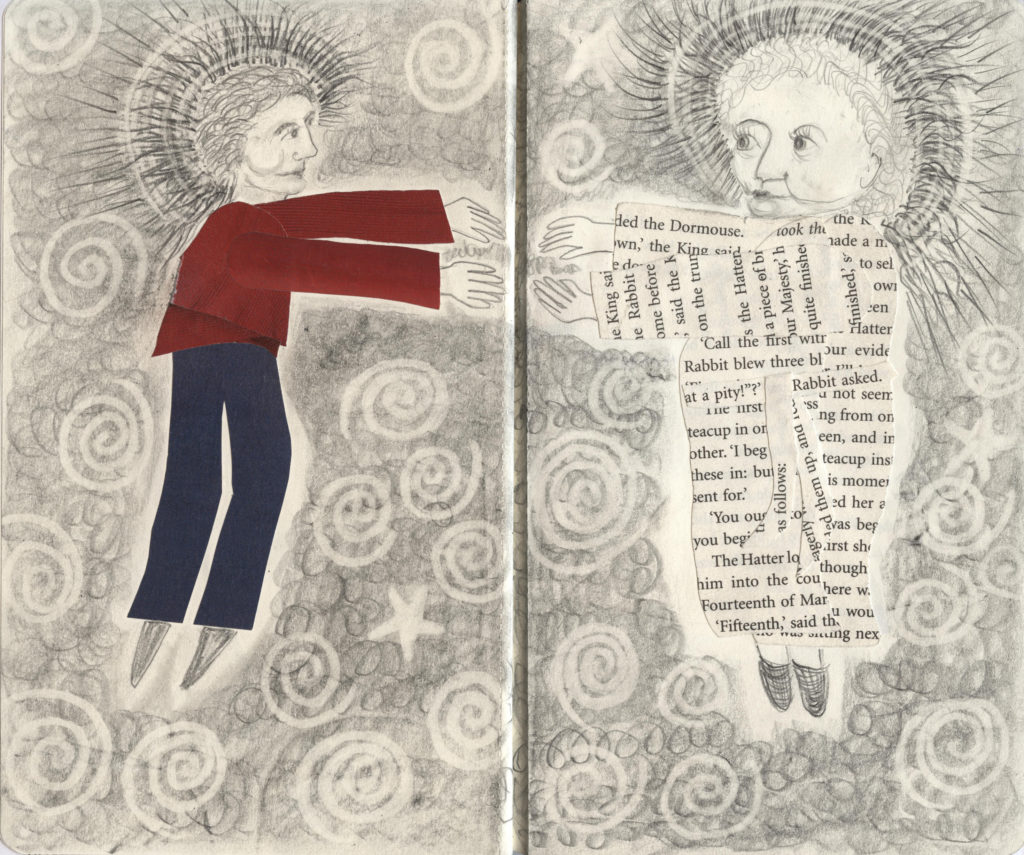 ded the Dormouse.
took the
own,' the King said
to sel
own
een
Hatter
King said
Rabbit
ome before
' said the K
on the trun
s the Hatten
a piece of b
our Majesty,' h
quite finished
finished,' s
'Call the first with
Rabbit blew three bl
our evide
at a pity!"?'
Rabbit asked.
The first
d not seem
ess
teacup in on
ng from on
other. 'I beg
een, and in
these in: but
teacup inst
sent for.'
is momen
as follows:
ted them up, and
'You oug
ed her a
you begi
was beg
The Hatter lo
agerly
first she
though
him into the cou
here wa
Fourteenth of Mar
u wou
'Fifteenth,' said th
was sitting nex